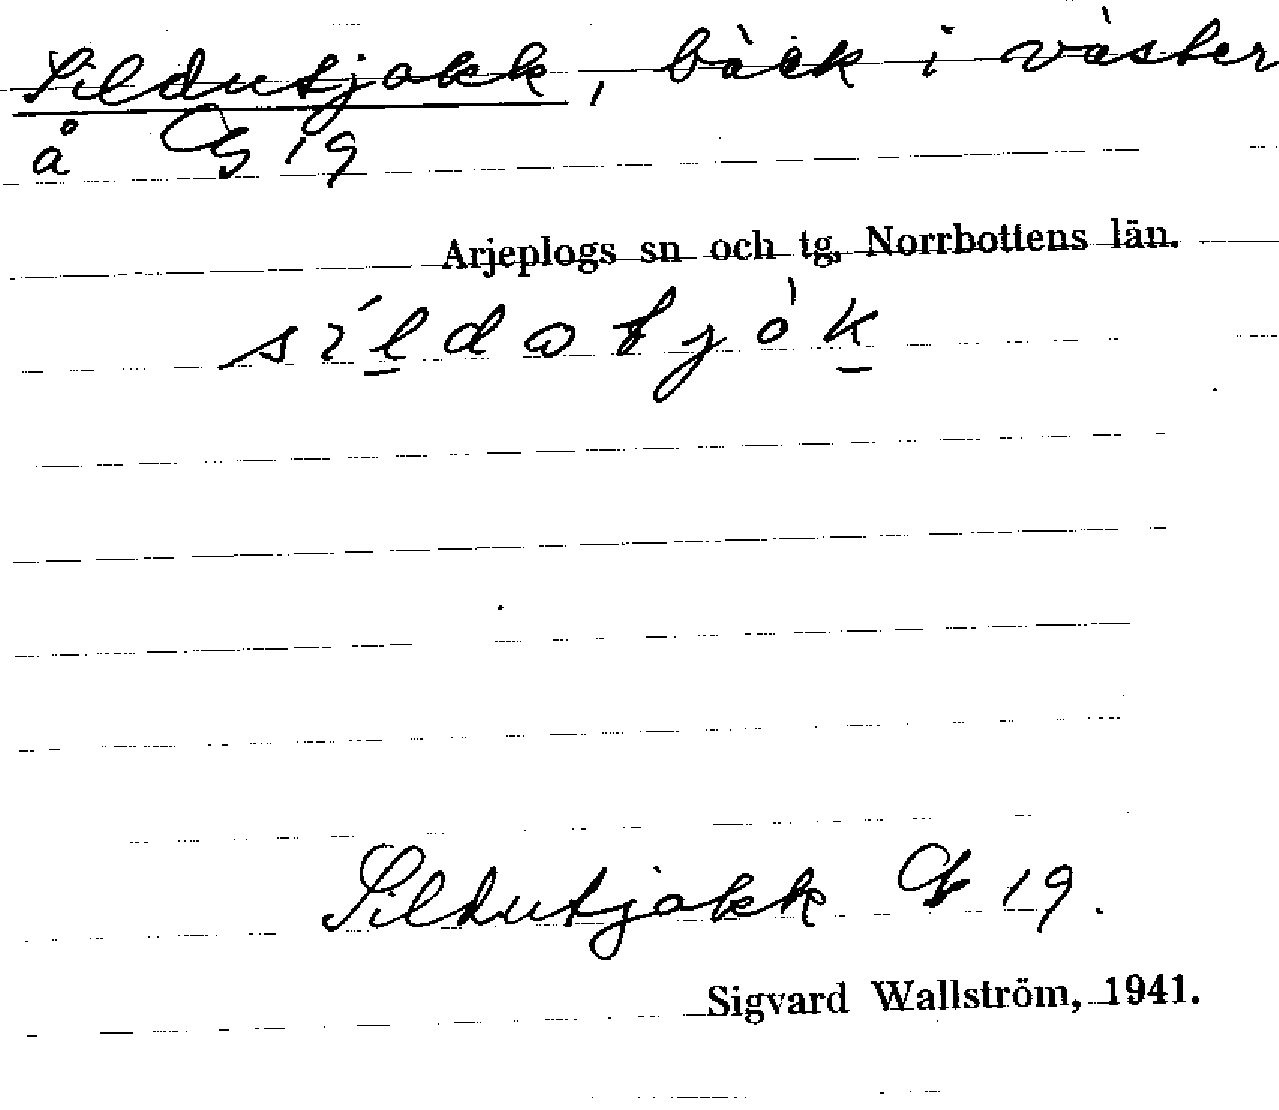 Sildutjakk, bäck i väster
å G 19
Arjeplogs sn och tg, Norrbottens län.
síldatjòk
Sildutjakk G 19.
Sigvard Wallström, 1941.